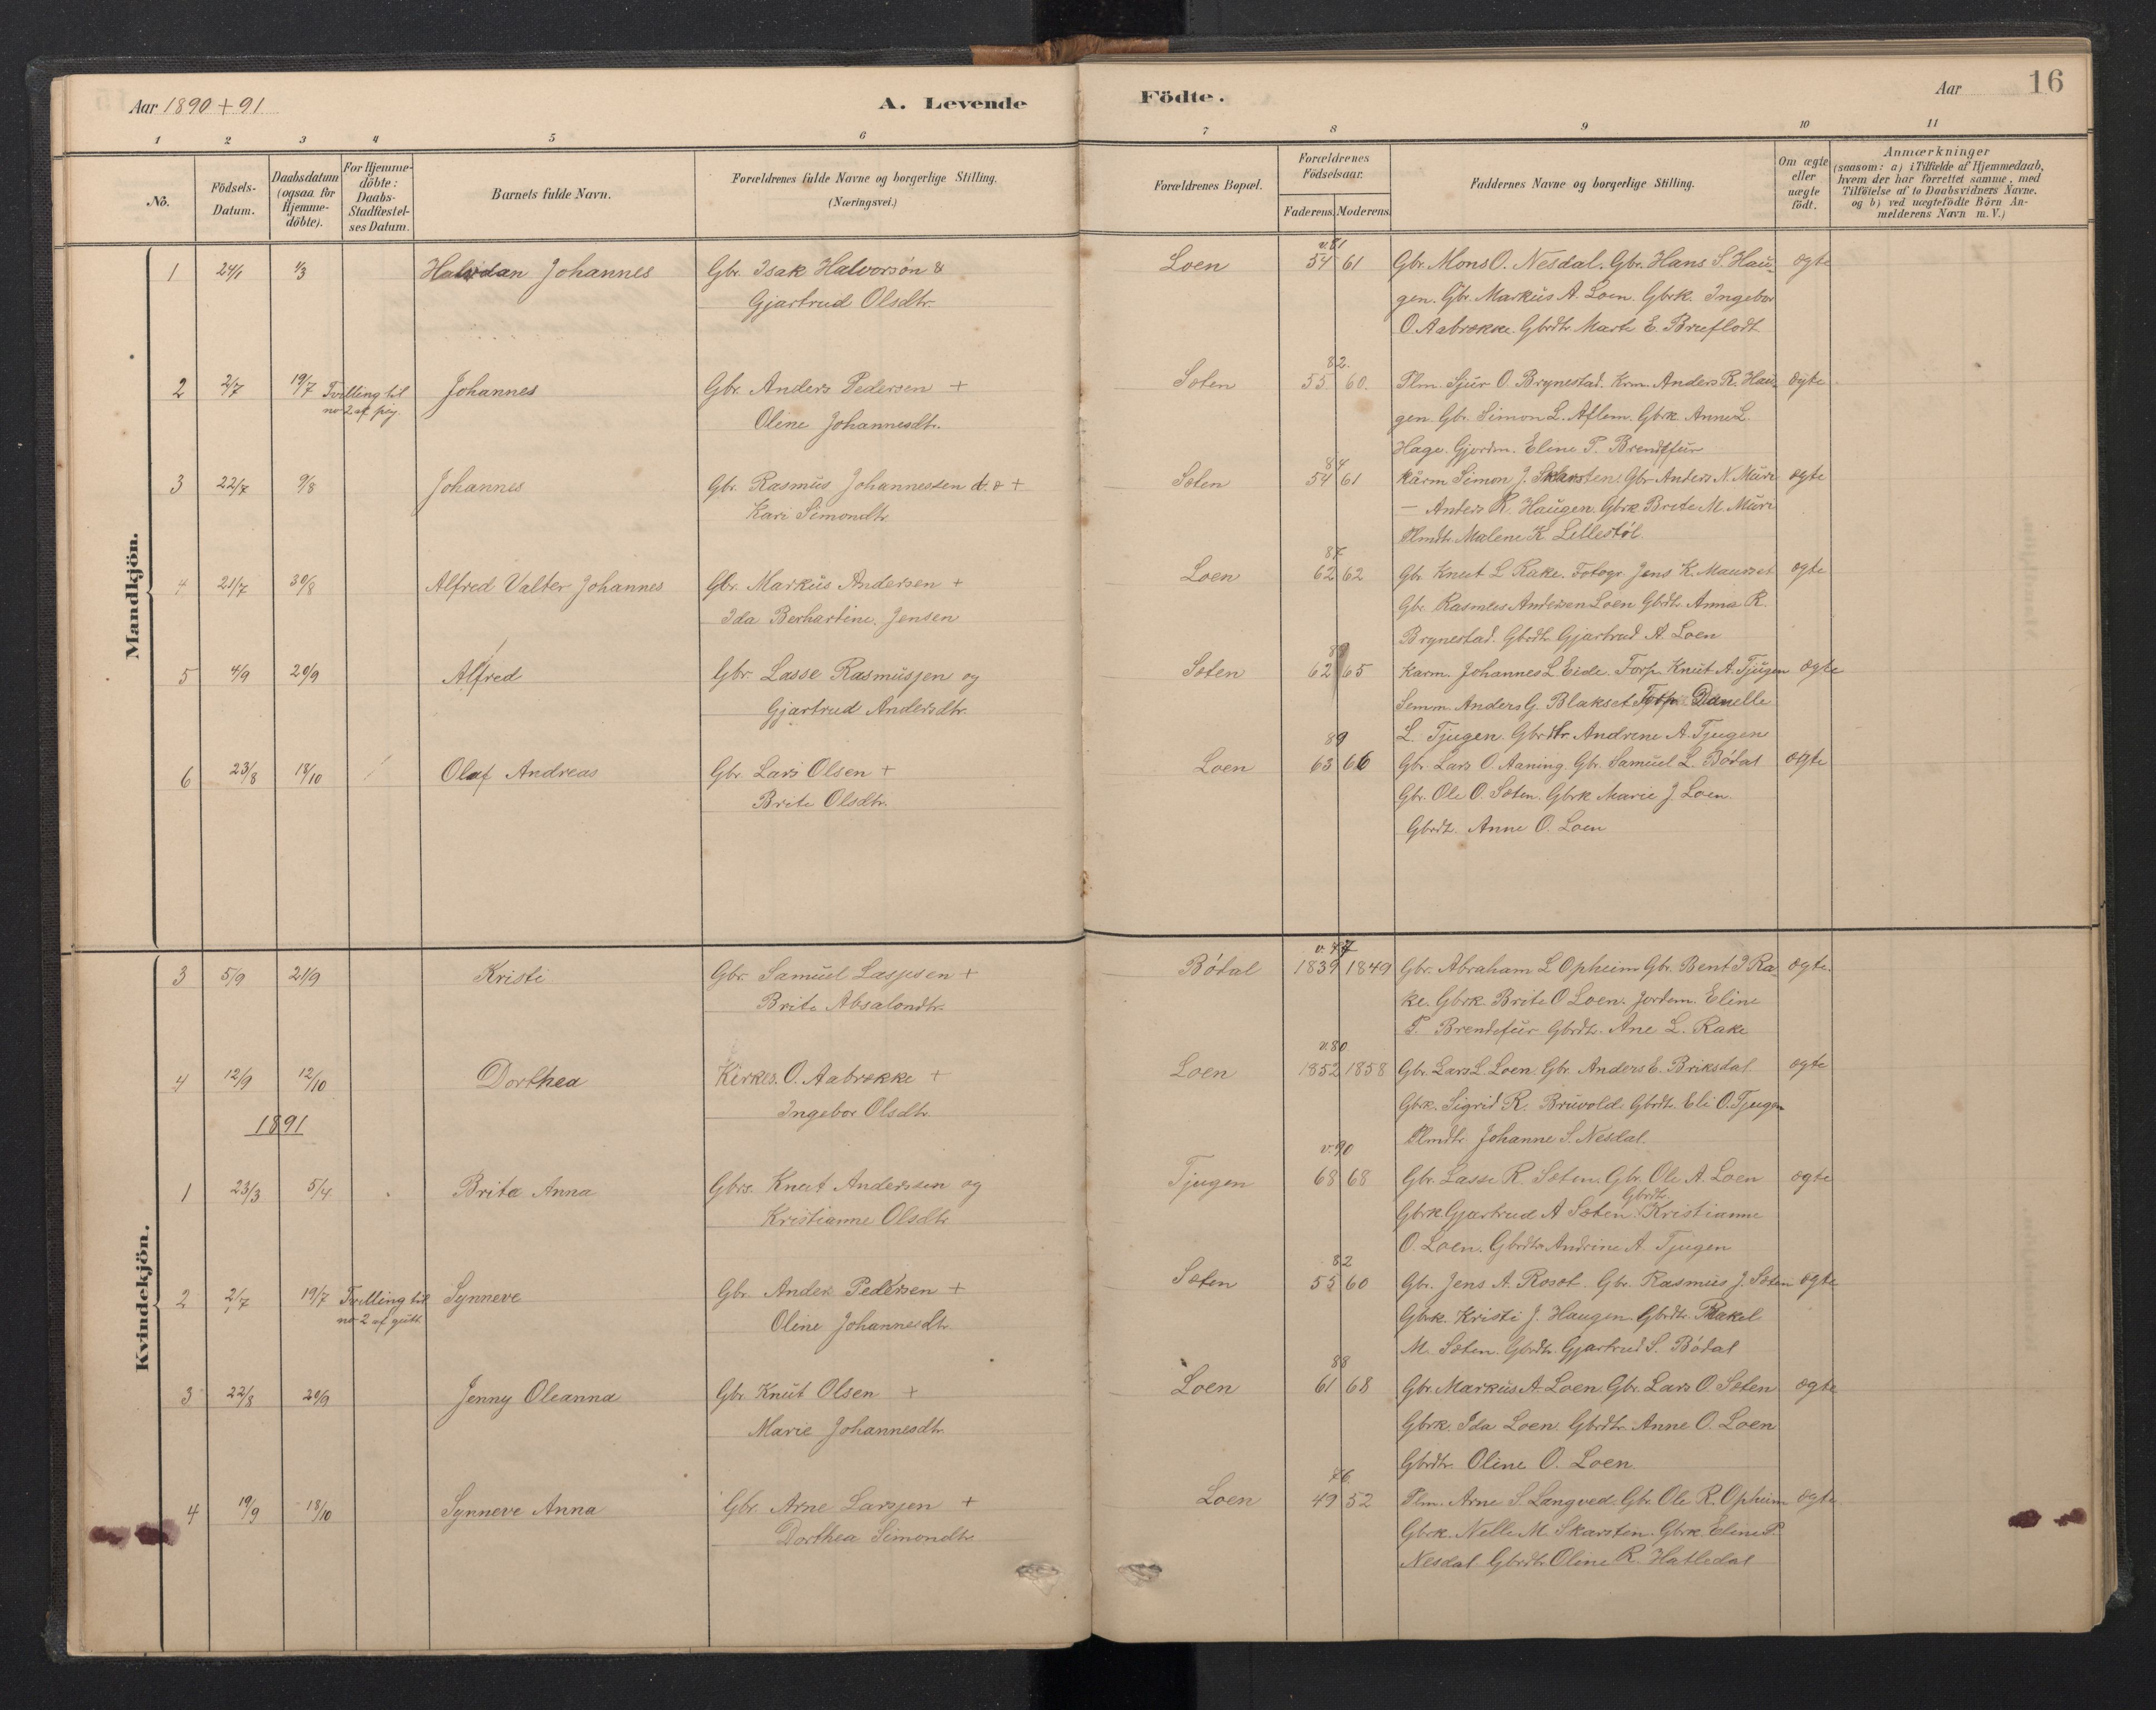 Aar 1890 + 91
A. Levende Födte.
Aar
16
1 2 3 4 5 6 7 8 9 10 11
No.
Födsels-Datum.
Daabsdatum (ogsaa for Hjemme-döbte).
For Hjemme-döbte: Daabs-Stadfæstel-ses Datum.
Barnets fulde Navn.
Forældrenes fulde Navne og borgerlige Stilling. (Næringsvei.)
Forældrenes Bopæl.
Forældrenes Födselsaar.
Faderens. Moderens.
Faddernes Navne og borgerlige Stilling.
Om ægte eller uægte födt.
Anmærkninger
(saasom: a) i Tilfælde af Hjemmedaab,
hvem der har forrettet samme, med
Tilföielse af to Daabsvidners Navne.
og b) ved uægtefödte Börn An-
melderens Navn m. V.)
Mandkjön.
v. 81
1 24/1 1/3 Halvdan Johannes Gbr. Isak Halvorsøn & Loen 54 61 Gbr. Mons O. Nesdal. Gbr. Hans S. Hau- ægte
Gjartrud Olsdtr. gen. Gbr. Markus A. Loen. Gbrk. Ingebor
O. Aabrekke. Gbrdtr. Marte E. Bruflodt
82.
2 2/7 19/7 Tvilling til Johannes Gbr. Anders Pedersen + Sæten 55 60. Plm. Sjur O. Brynestad. Krm. Anders R. Hau- ægte
no 2 af pig. Oline Johannesdtr. gen. Gbr. Simon L. Aflem. Gbrk Anne L.
Hage. Gjordm. Eline P. Brendefur
84
3 22/7 9/8 Johannes Gbr. Rasmus Johannessen d. æ + Sæten 54 61 Kårm Simon J. Skarsten. Gbr Anders N. Muri ægte
Kari Simondtr — Anders R. Haugen. Gbrk Brite M. Muri
Plmdtr. Malene K Lillestøl.
87
4 21/7 30/8 Alfred Valter Johannes Gbr. Markus Andersen + Loen 62 62 Gbr. Knut L Rake. Fotogr. Jens K. Maurset ægte
Ida Berhartine Jensen Gbr. Rasmus Andersen Loen Gbrdtr. Anna R.
Brynestad. Gbrdtr. Gjartrud A. Loen
5 4/9 20/9 Alfred Gbr. Lasse Rasmusjen og Sæten 62 65 Karm. Johannes L Eide. Forp. Knut A. Tjugen ægte
Gjartrud Andersdtr Semm. Anders G. Blakset Danelle
L. Tjugen. Gbrdtr. Andrine A. Tjugen
89
6 23/8 18/10 Olaf Andreas Gbr. Lars Olsen + Loen 63 66 Gbr. Lars O. Aaning. Gbr. Samuel L. Bødal ægte
Brite Olsdtr. Gbr. Ole O. Sæten. Gbrk Marie J. Loen.
Gbrdtr. Anne O. Loen
Kvindekjön.
3 5/9 21/9 Kristi Gbr. Samuel Lasjesen + Bødal 1839 1849 Gbr. Abraham L Opheim Gbr. Bent I Ra- ægte.
Brite Absalondtr. ke. Gbrk. Brite O Loen. Jordem. Eline
P. Brendefur Gbrdtr. Ane L. Rake
v. 80
4 12/9 12/10 Dorthea Kirkes. O. Aabrekke + Loen 1852 1858 Gbr. Lars L. Loen Gbr. Anders E. Briksdal. ægte
Ingebor Olsdtr. Gbrk. Sigrid R. Bruvold. Gbrdtr. Eli O. Tjugen
1891 Plmdtr. Johanne S. Nesdal.
v. 90
1 23/3 5/4 Brita Anna Gbrs. Knut Anderssen og Tjugen 68 68 Gbr. Lasse R. Sæten. Gbr. Ole A. Loen ægte
Kristianne Olsdtr Gbrk Gjartrud A Sæten Gbrdtr. Kristianne
O. Loen. Gbrdtr. Andrine A. Tjugen
82
2 2/7 19/7 Tvilling til Synneve Gbr. Anders Pedersen + Sæten 55 60 Gbr. Jens A. Rosæt. Gbr. Rasmus J. Sæten ægte
no 2 af gutt Oline Johannesdtr. Gbrk. Kristi J. Haugen Gbrdtr. Rakel
M. Sæten. Gbrdtr. Gjartrud S. Bødal
88
3 22/8 20/9 Jenny Oleanna Gbr. Knut Olsen + Loen 61 68 Gbr. Markus A. Loen. Gbr. Lars O. Sæten ægte
Marie Johannesdtr. Gbrk. Ida Loen Gbrdtr. Anne O. Loen
Gbrdtr. Oline O. Loen.
76.
4 19/9 18/10 Synneve Anna Gbr. Arne Larsjen + Loen 49 52 Plm. Arne S. Langved. Gbr. Ole R. Opheim ægte
Dorthea Simondtr. Gbrk. Nelle M. Skarsten. Gbrk. Eline P.
Nesdal. Gbrdtr. Oline R. Hatledal